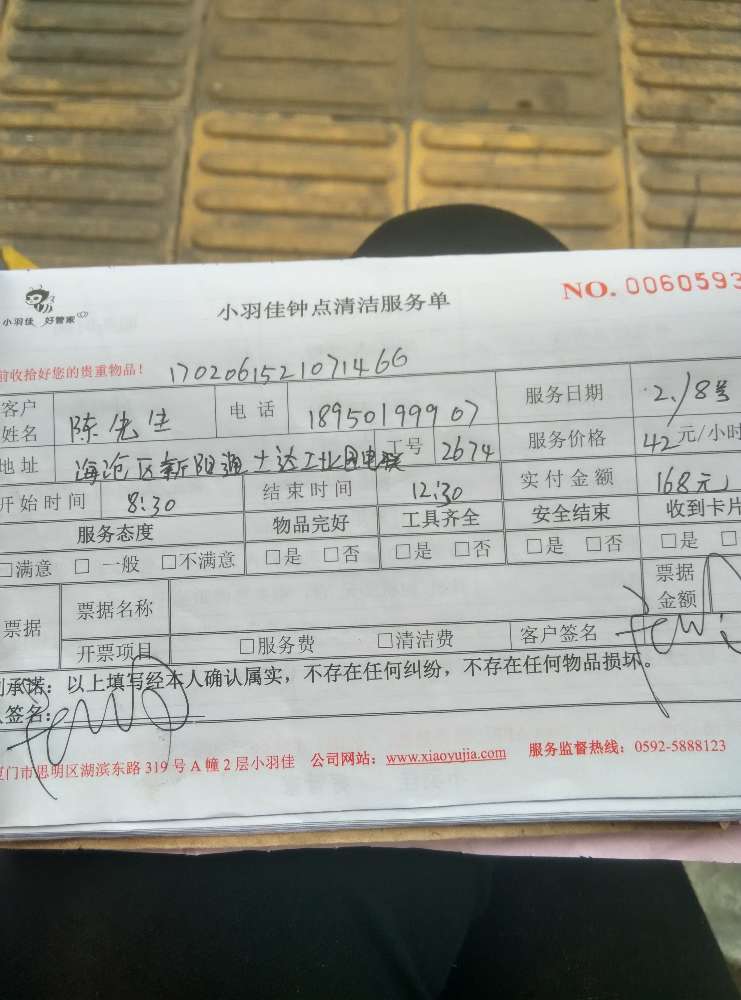 小羽佳 好管家
小羽佳钟点清洁服务单
NO. 0060593
前收拾好您的贵重物品!
1702061521071466
客户姓名 陈先生 电话 18950199907 服务日期 2./8号
地址 海沧区新阳通士达工业园电联 工号 2674 服务价格 42元/小时
开始时间 8:30 结束时间 12:30 实付金额 168元
服务态度 物品完好 工具齐全 安全结束 收到卡片
□满意 □一般 □不满意 □是 □否 □是 □否 □是 □否 □是 □
票据 票据名称 票据金额
开票项目 □服务费 □清洁费 客户签名
承诺：以上填写经本人确认属实，不存在任何纠纷，不存在任何物品损坏。
签名：
厦门市思明区湖滨东路 319 号 A 幢 2 层小羽佳 公司网站：www.xiaoyujia.com 服务监督热线：0592-5888123